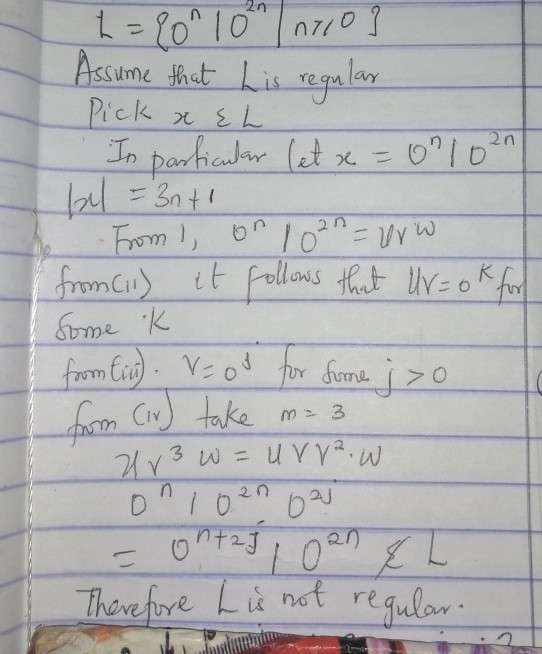 L = {0ⁿ 1 0²ⁿ | n ≥ 0}
Assume that L is regular
Pick x ε L
In particular let x = 0ⁿ 1 0²ⁿ
|x| = 3n+1
From 1, 0ⁿ 1 0²ⁿ = uvw
from (ii) it follows that uv = 0ᴷ for
Some K
from (iii). v = 0ʲ for some j > 0
from (iv) take m = 3
uv³w = uvv².w
0ⁿ 1 0²ⁿ 0²ʲ
= 0ⁿ⁺²ʲ 1 0²ⁿ ∉ L
Therefore L is not regular.